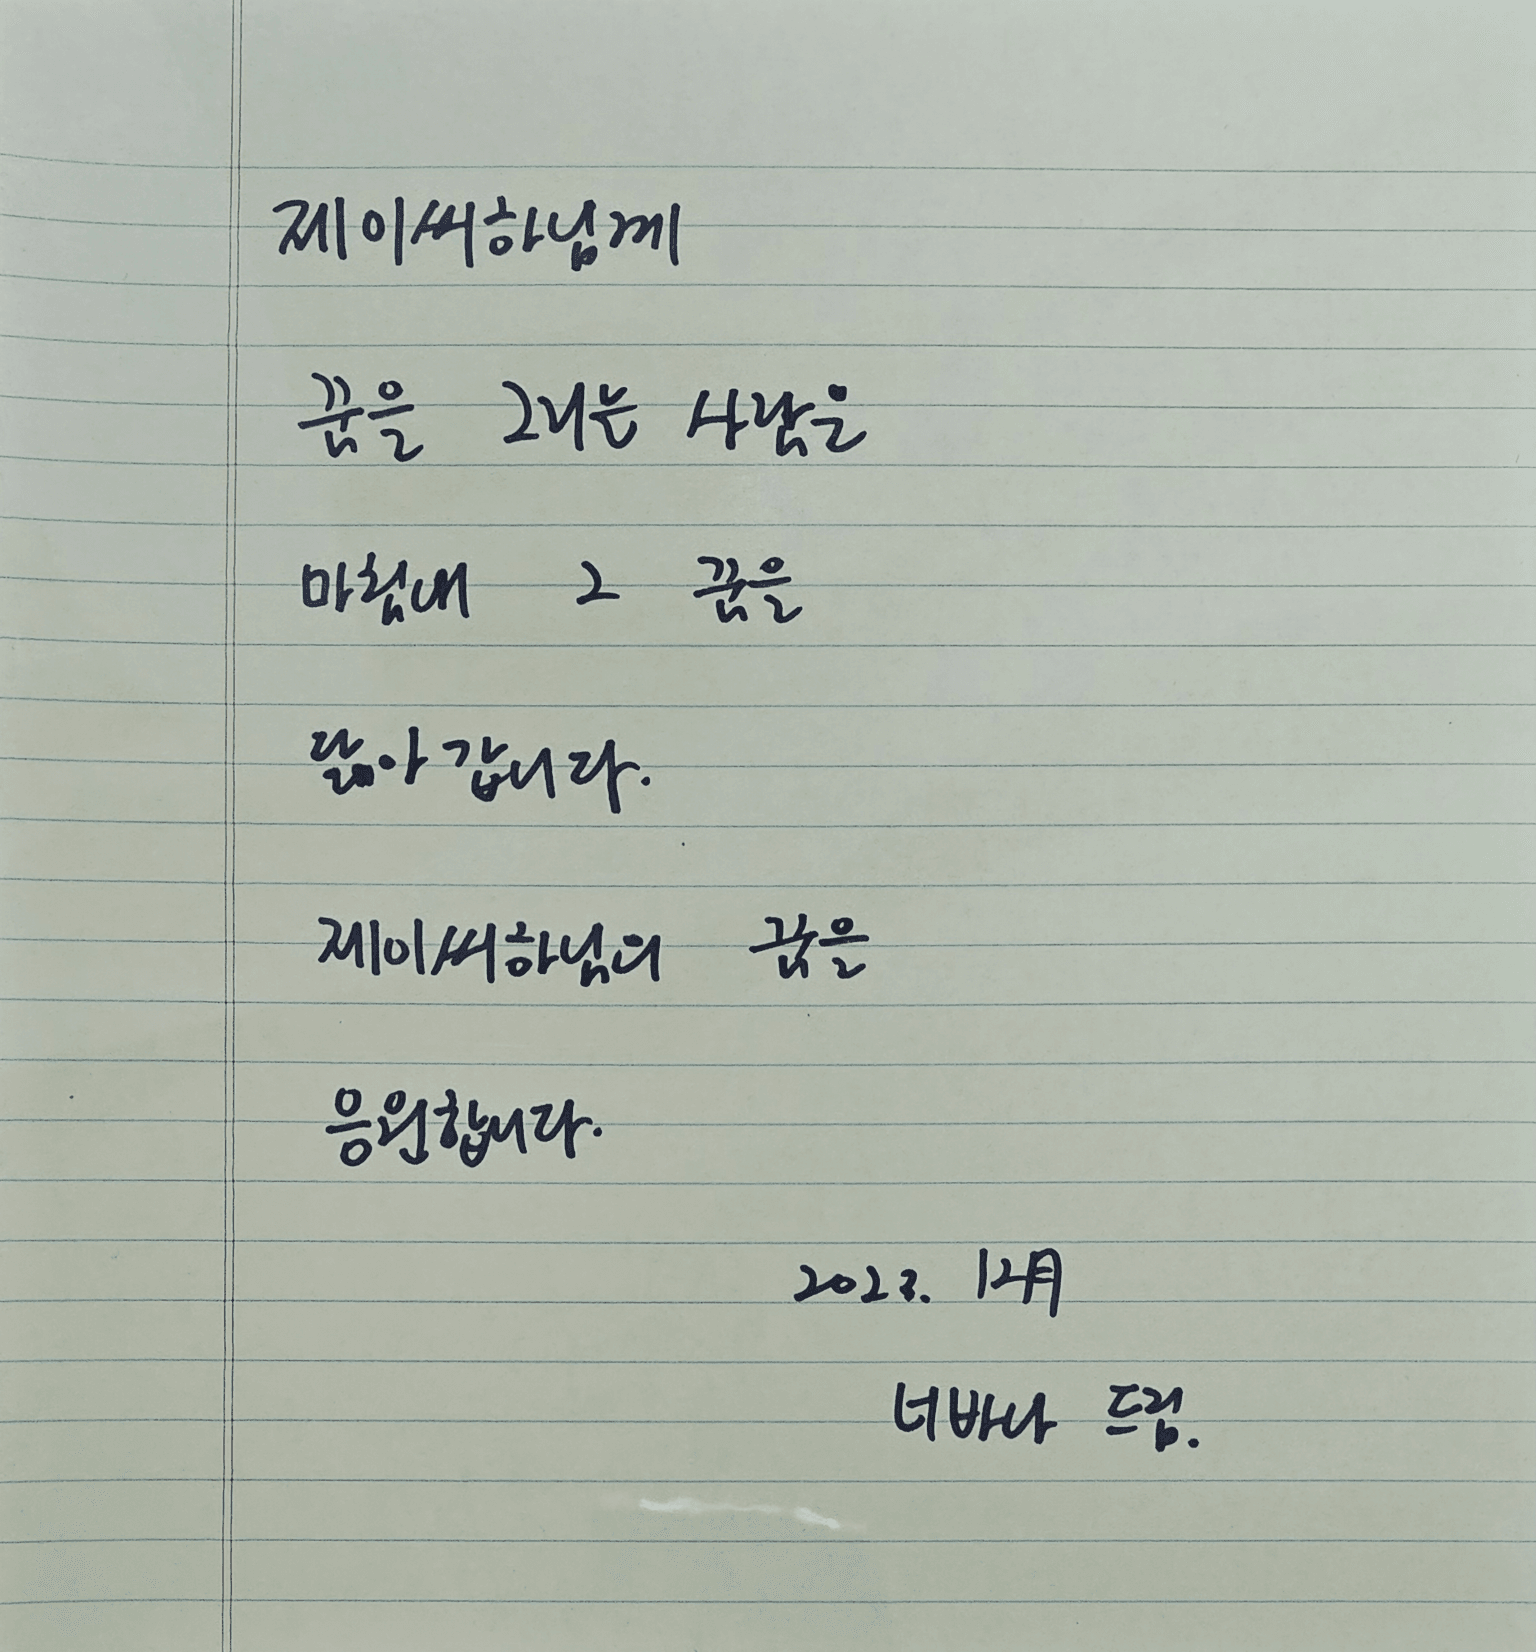 제이씨하님께
꿈을 그리는 사람은
마침내 그 꿈을
닮아 갑니다.
제이씨하님의 꿈을
응원합니다.
2023. 12月
너바나 드림.